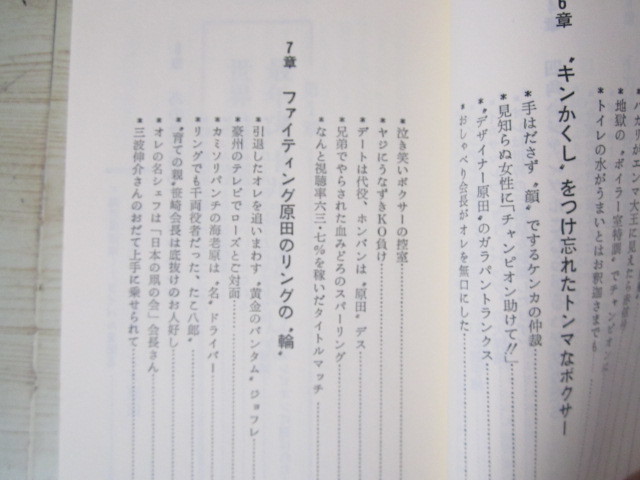 地獄の〝ボイラー室特訓〟でチャンピオンに
＊トイレの水がうまいとはお釈迦さまでも
6章 〝キンかくし〟をつけ忘れたトンマなボクサー
＊手はださず〝顔〟でするケンカの仲裁
＊見知らぬ女性に「チャンピオン助けて!!」
＊〝デザイナー原田〟のガラパントランクス
＊おしゃべり会長がオレを無口にした
＊泣き笑いボクサーの控室
＊ヤジにうなずきKO負け
＊デートは代役、ホンバンは〝原田〟デス
＊兄弟でやらされた血みどろのスパーリング
＊なんと視聴率六三・七%を稼いだタイトルマッチ
7章 ファイティング原田のリングの〝輪〟
＊引退したオレを追いまわす〝黄金のバンタム〟ジョフレ
＊豪州のテレビでローズとご対面
＊カミソリパンチの海老原は〝名〟ドライバー
＊リングでも千両役者だった、たこ八郎
＊〝育ての親〟笹崎会長は底抜けのお人好し
＊オレの名シェフは「日本の凧の会」会長さん
＊三波伸介さんのおだて上手に乗せられて